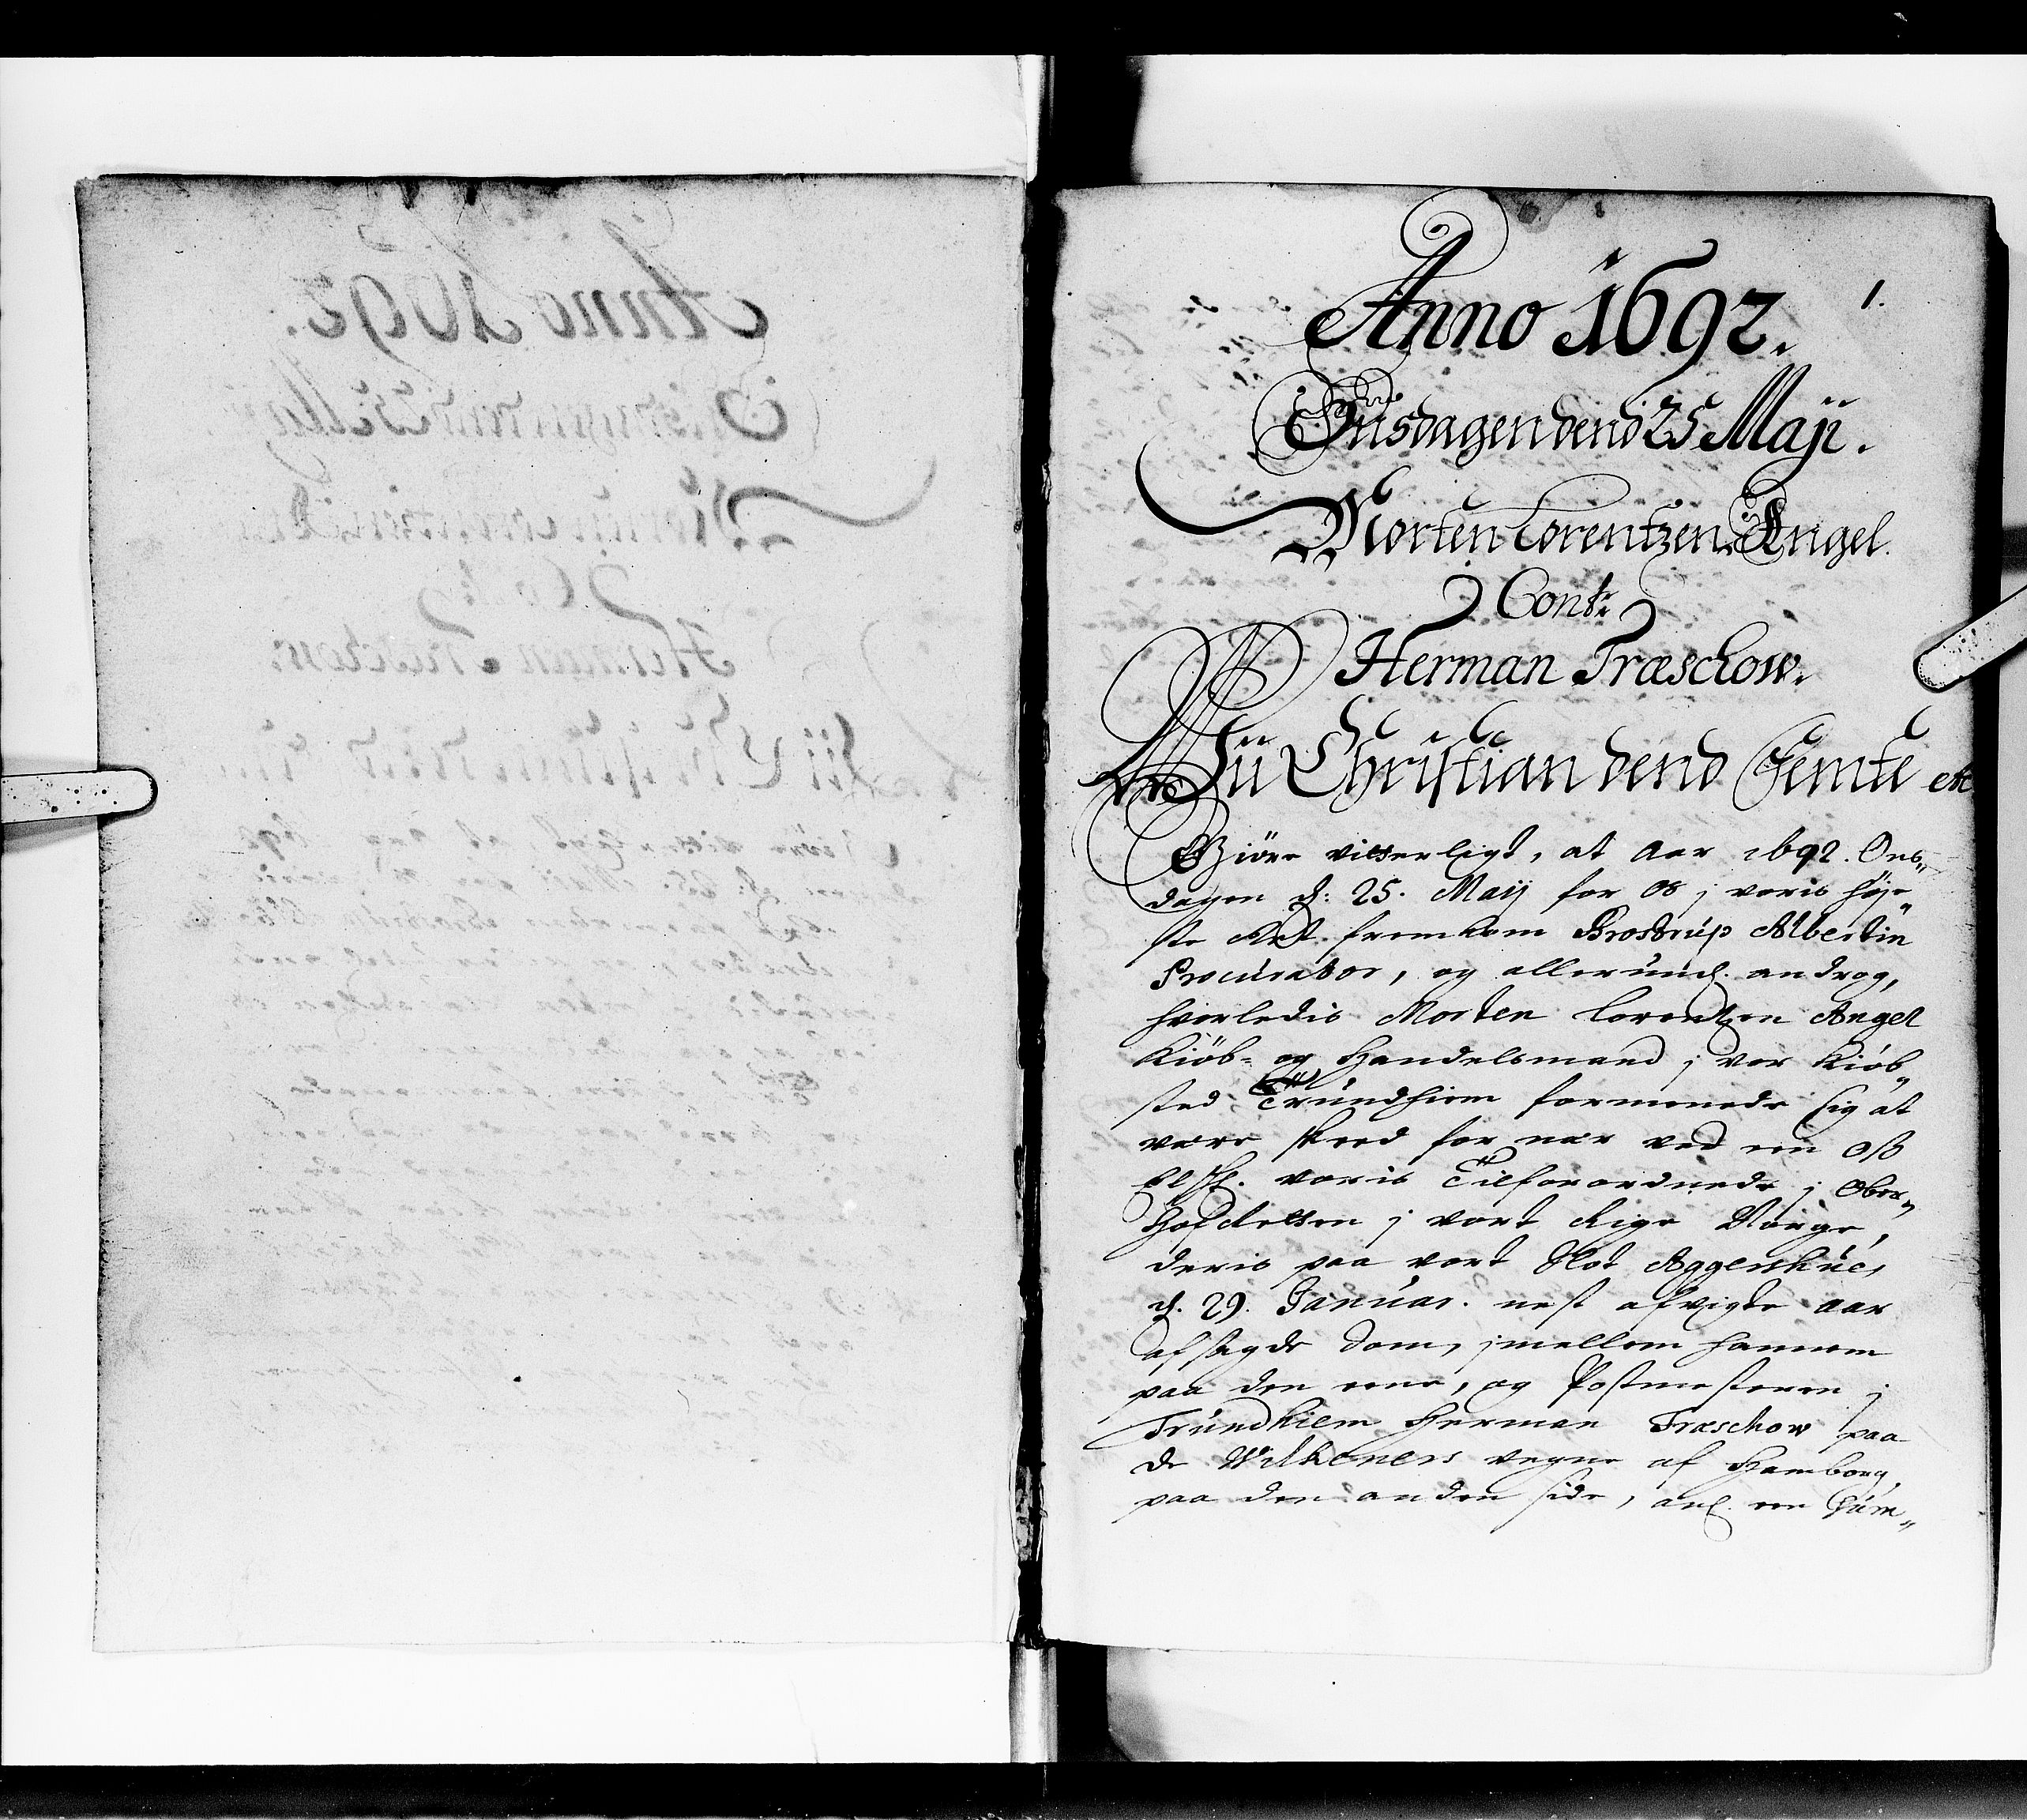 1.
Anno 1692.
Onsdagen dend 25 Maji.
Morten Lorentzen Angel.
Contr.
Herman Træschow.
Wii Christian dend Femte etc
Giöre vitterligt, at Aar 1692. Ons„
dagen d: 25. Maij for os j voris Høje„
ste Ret fremkom Brostrup Albertin
Procurator, og allerund. androg,
hvorledis Morten Lorentzen Angel
Kiöb- og Handelsmand j vor Kiöb„
sted Trundhiem formenede sig at
være skeed for nær ved een oß
Elsch. voris Tilforordnede j Ober„
Hof Retten j vort Rige Norge,
deris paa vort Slot Aggershuus
d. 29. Januar. nest afvigte Aar
afsagde Dom, jmellem hannem
paa den eene, og Postmesteren j
Trundhiem Herman Træschow paa
de Wilkeners vegne af Hamborg,
paa den anden side, anl. een Sum„